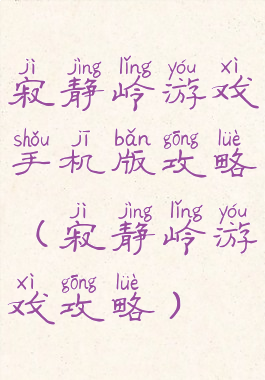 jì jìng lǐng yóu xì
寂静岭游戏
shǒu jī bǎn gōng lüè
手机版攻略
jì jìng lǐng yóu
（寂静岭游
xì gōng lüè
戏攻略）